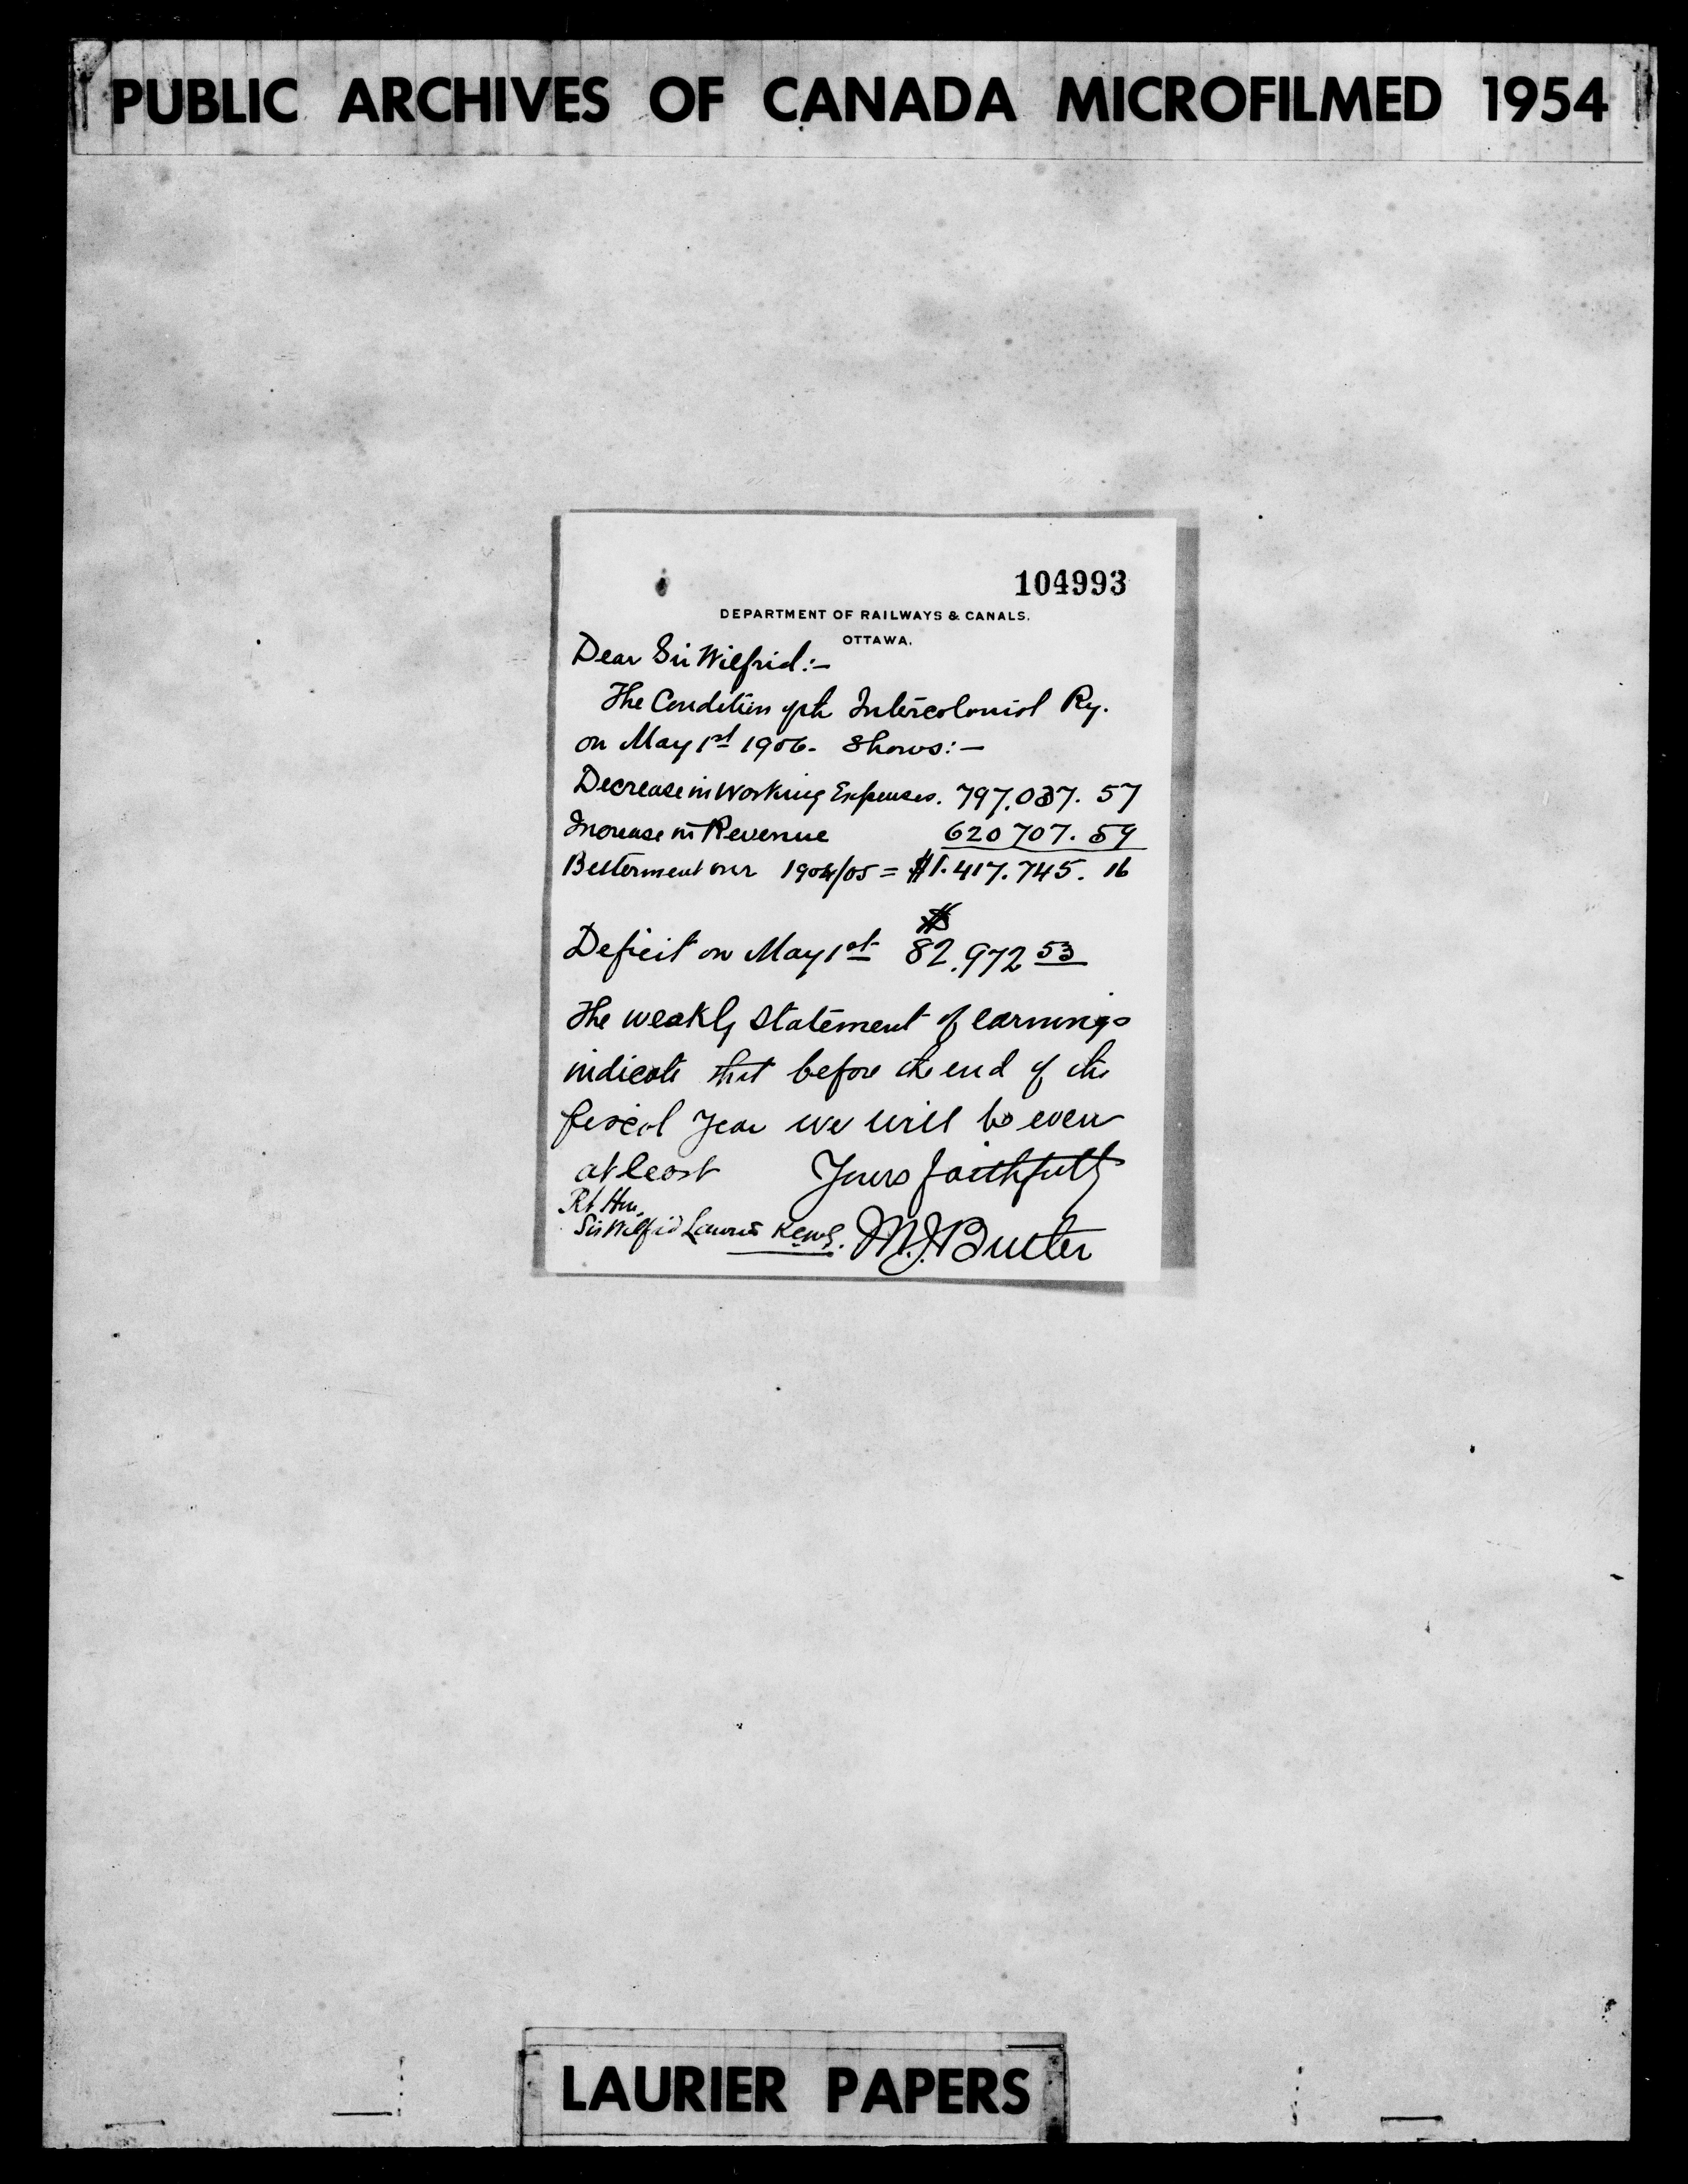 PUBLIC ARCHIVES OF CANADA MICROFILMED 1954
104993
DEPARTMENT OF RAILWAYS & CANALS.
OTTAWA.
Dear Sir Wilfrid:-
The Condition of the Intercolonial Ry.
on May 1st 1906. Shows:-
Decrease in Working Expenses. 797,037. 57
Increase in Revenue 620 707. 59
Betterment over 1904/05 = $1.417.745. 16
$
Deficit on May 1st 82,972 53
The weekly statement of earnings
indicate that before the end of the
fiscal year we will be even
at least Yours faithfully
Rt Hon.
Sir Wilfrid Laurier KCMG. M.J. Butler
LAURIER PAPERS